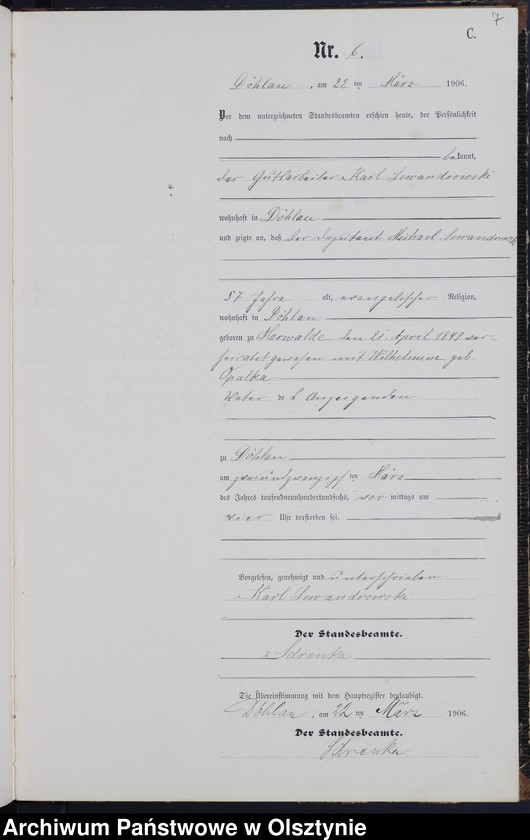 7
C.
Nr. 6.
Döhlau, am 22 ten März 1906.
Vor dem unterzeichneten Standesbeamten erschien heute, der Persönlichkeit
nach
bekannt,
der Gutsarbeiter Karl Lewandrowski
wohnhaft in Döhlau
und zeigte an, daß der Deputant Michael Lewandrowski
57 Jahre alt, evangelischer Religion,
wohnhaft in Döhlau
geboren zu Harwalde den 21 April 1849 ver-
heiratet gewesen mit Wilhelmine geb.
Opalka
Vater des Anzeigenden
zu Döhlau
am zweiundzwanzigsten März
des Jahres tausendneunhundertundsechs, vor mittags um
vier Uhr verstorben sei.
Vorgelesen, genehmigt und unterschrieben
Karl Lewandrowski
Der Standesbeamte.
Die Übereinstimmung mit dem Hauptregister beglaubigt.
Döhlau, am 22 ten März 1906.
Der Standesbeamte.
Archiwum Państwowe w Olsztynie